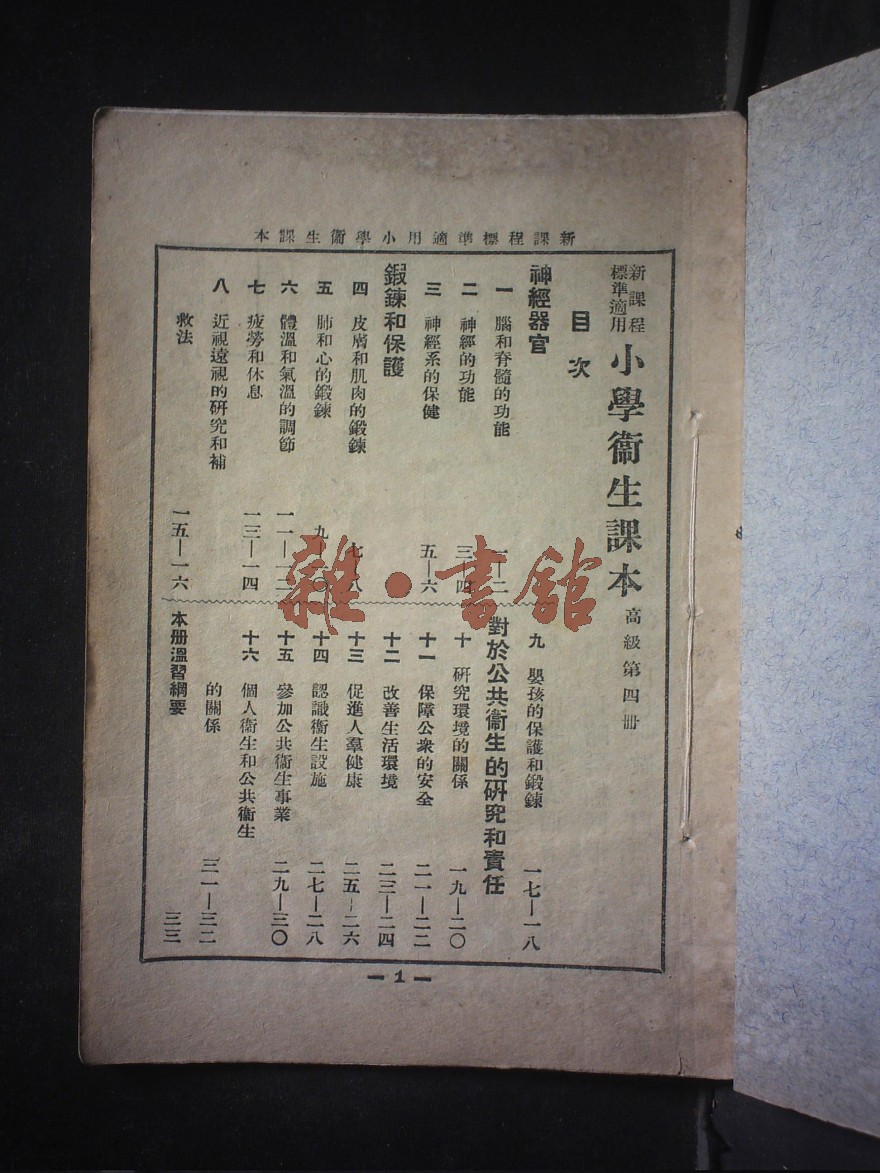 新課程標準適用小學衞生課本
新課程
標準適用
小學衞生課本
高級第四冊
目次
神經器官
一 腦和脊髓的功能 一—二
二 神經的功能 三—四
三 神經系的保健 五—六
鍛鍊和保護
四 皮膚和肌肉的鍛鍊 七—八
五 肺和心的鍛鍊 九—一〇
六 體溫和氣溫的調節 一一—一二
七 疲勞和休息 一三—一四
八 近視遠視的研究和補
救法 一五—一六
九 嬰孩的保護和鍛鍊 一七—一八
對於公共衞生的研究和責任
十 研究環境的關係 一九—二〇
十一 保障公衆的安全 二一—二二
十二 改善生活環境 二三—二四
十三 促進人羣健康 二五—二六
十四 認識衞生設施 二七—二八
十五 參加公共衞生事業 二九—三〇
十六 個人衞生和公共衞生
的關係 三一—三二
本册溫習綱要 三三
—1—
雜·書館